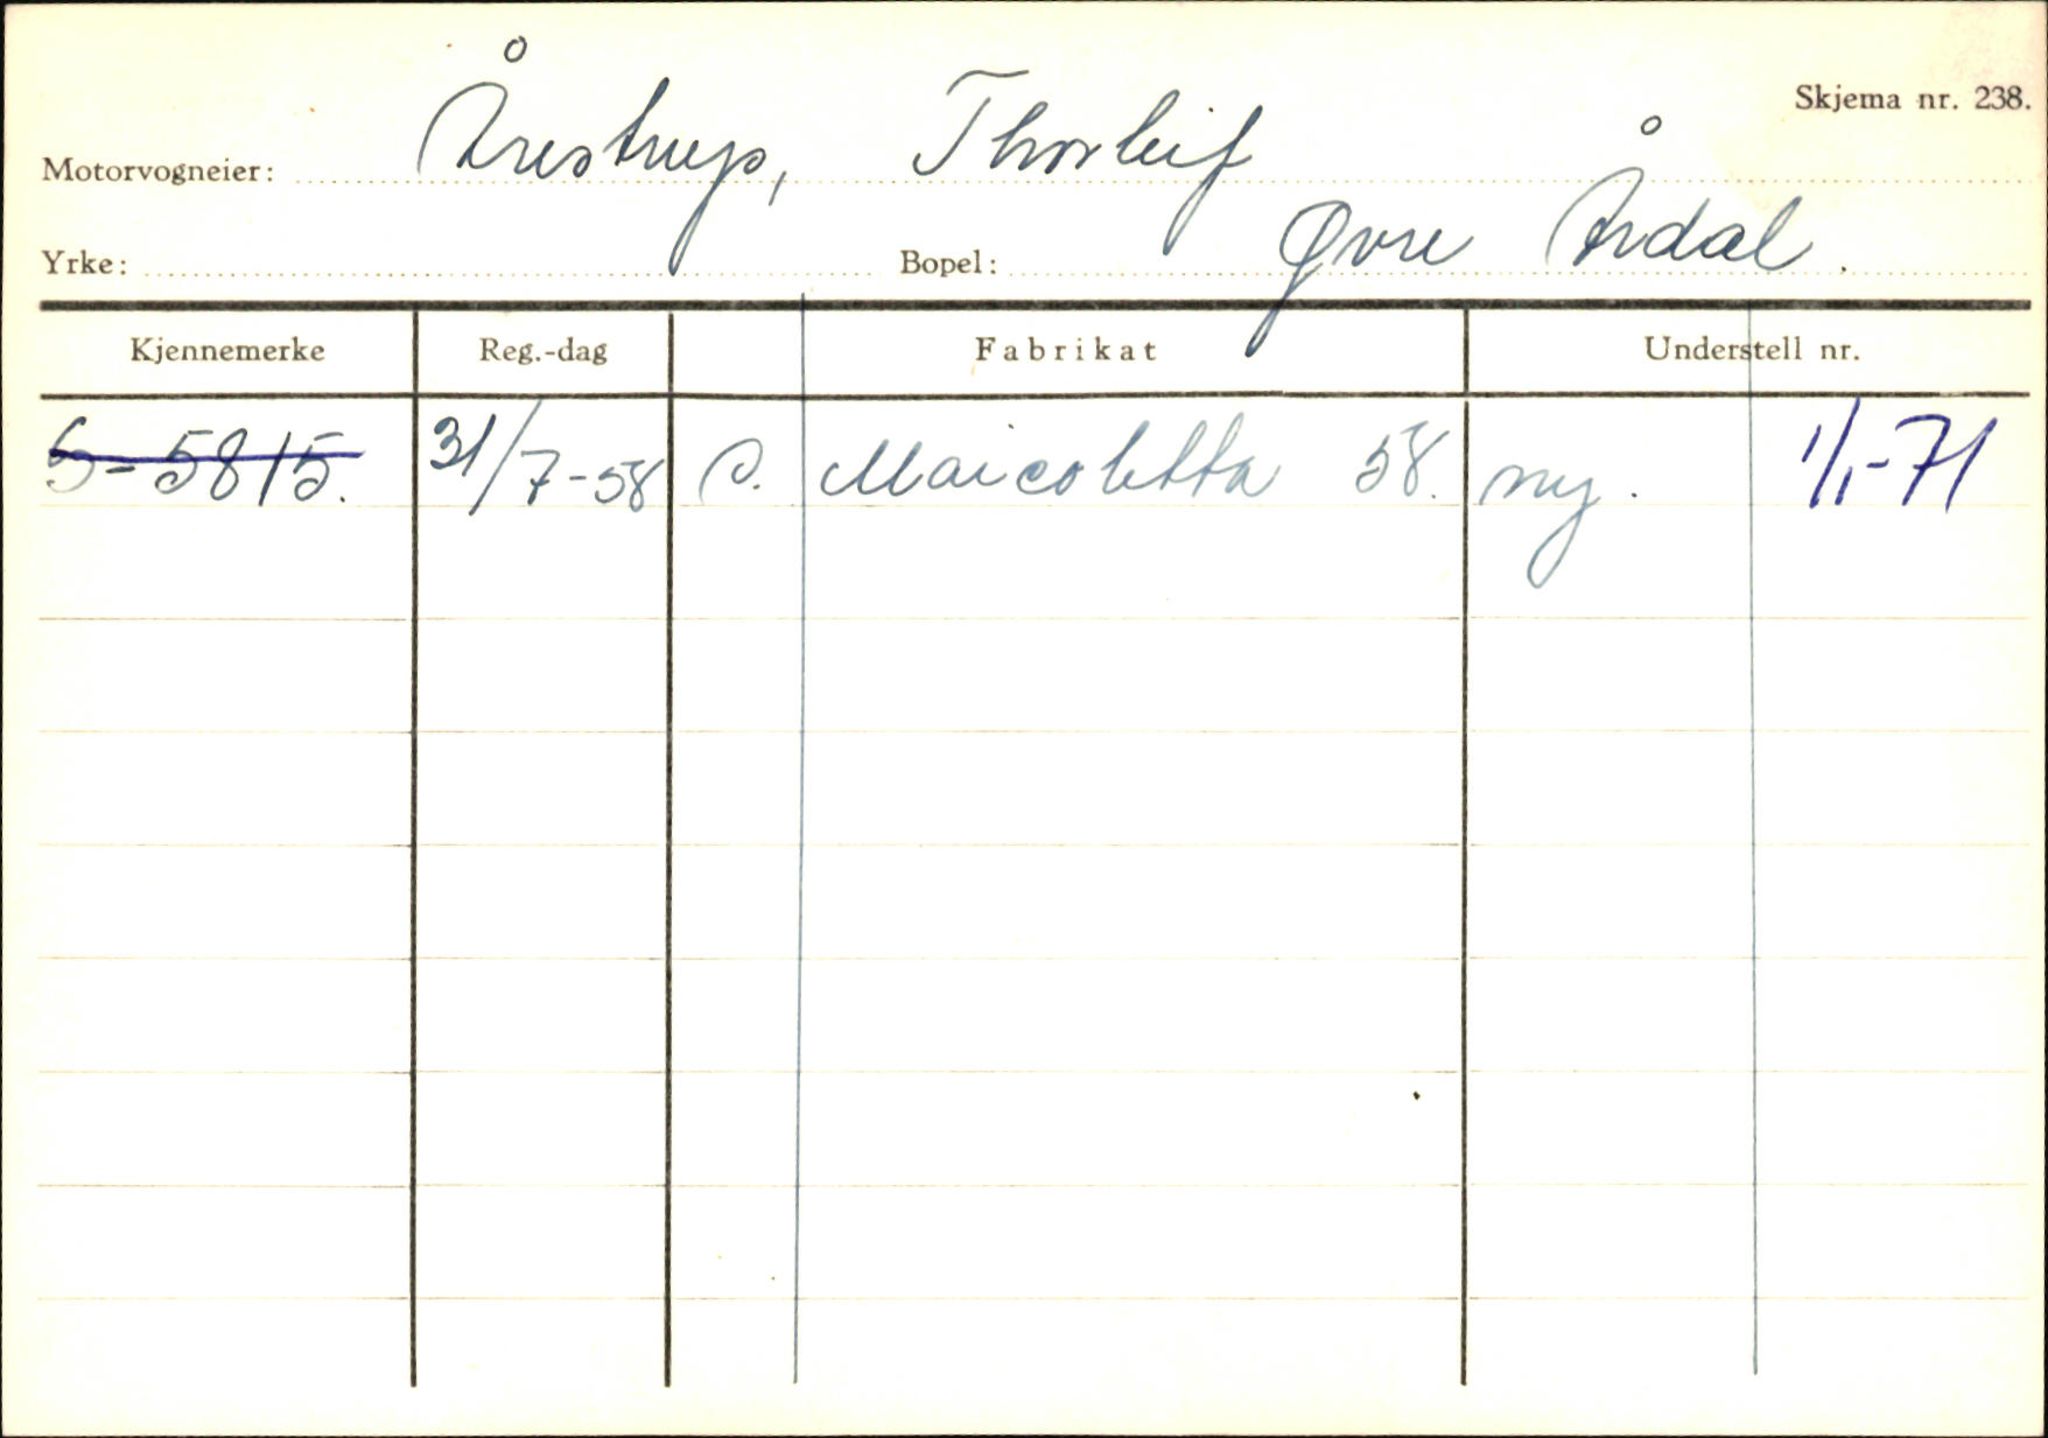 Skjema nr. 238.
Motorvogneier: Årestrup, Thorleif
Yrke: Bopel: Øvre Årdal.
Kjennemerke Reg.-dag Fabrikat Understell nr.
S-5815. 31/7-58 S. Maicoletta 58. ny. 1/1-71